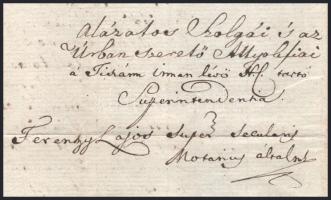 alázatos Szolgái és az
Urban szerető Attyokfiai
a Tiszám innen lévő Hv. tartó
Superintendentia.
Ferenczy Lajos Super Secularis
Notarius által mk